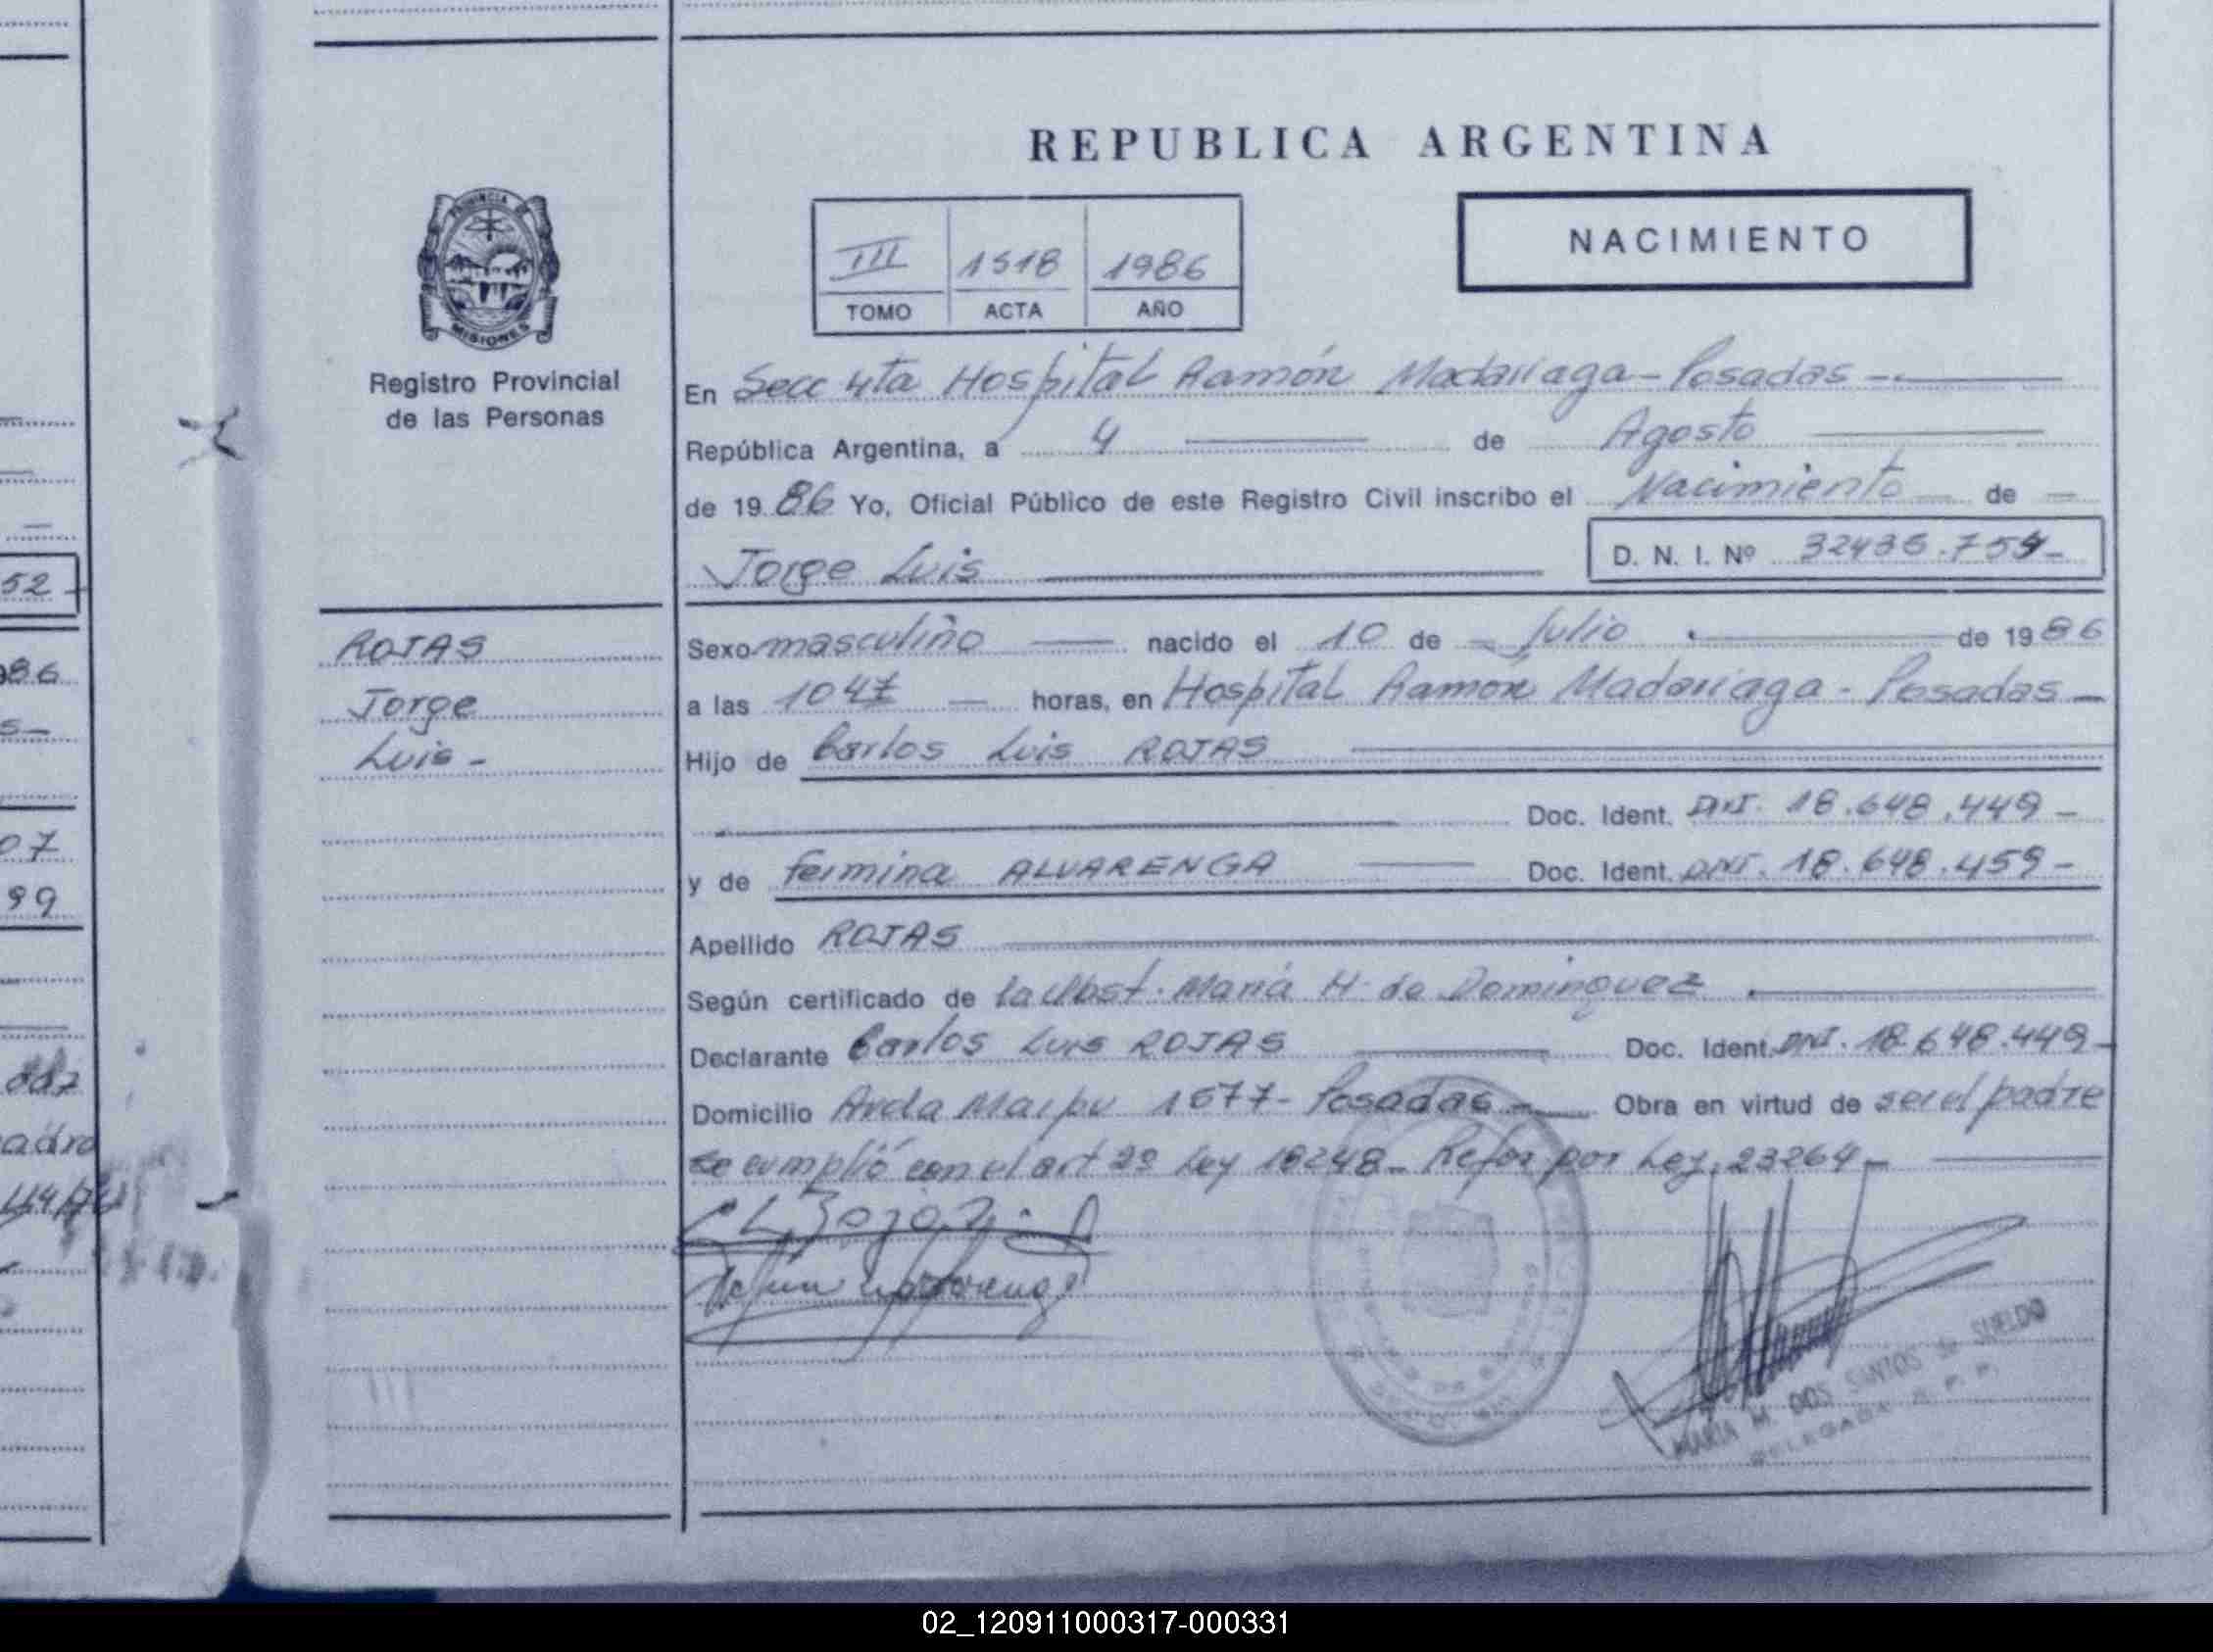 REPUBLICA ARGENTINA
NACIMIENTO
III 1518 1986
TOMO ACTA AÑO
PROVINCIA DE
MISIONES
Registro Provincial
de las Personas
En Secc 4ta Hospital Ramón Madariaga - Posadas -
República Argentina, a 4 de Agosto
de 19 86 Yo, Oficial Público de este Registro Civil inscribo el Nacimiento de
Jorge Luis D. N. I. Nº 32436.754-
ROJAS
Jorge
Luis -
Sexo masculino nacido el 10 de Julio de 19 86
a las 1047 horas, en Hospital Ramón Madariaga - Posadas -
Hijo de Carlos Luis ROJAS
Doc. Ident. DNI. 18.648.449 -
y de Fermina ALVARENGA Doc. Ident. DNI. 18.648.459 -
Apellido ROJAS
Según certificado de la Obst. María H. de Dominguez
Declarante Carlos Luis ROJAS Doc. Ident. DNI. 18.648.449 -
Domicilio Avda Maipu 1677 - Posadas - Obra en virtud de ser el padre
se cumplió con el art 2º Ley 18248 - Refor por Ley 23264 -
MARIA M. DOS SANTOS de SUELDO
52 -
86
07
99
02_120911000317-000331